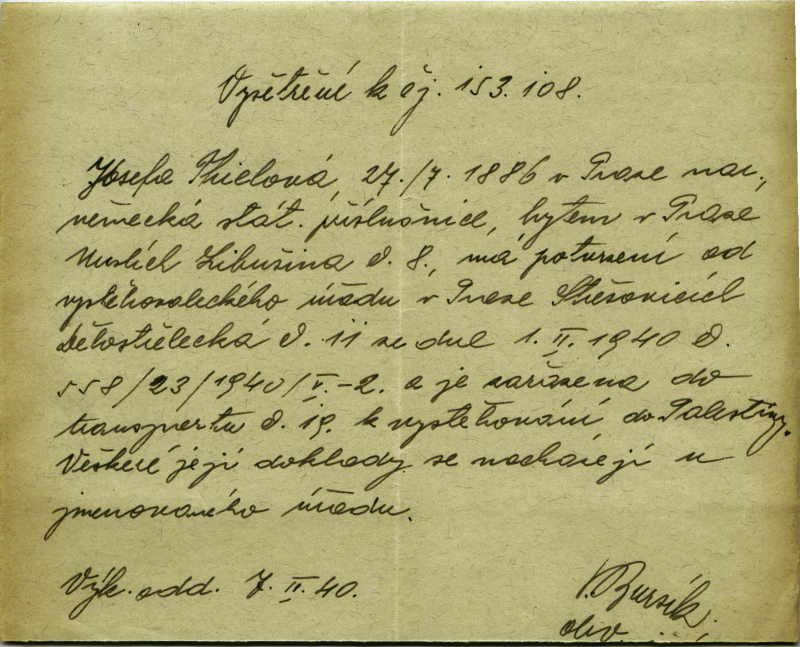 Vyšetření k čj. 153.108.
Josefa Thielová, 27./7. 1886 v Praze nar.,
německá stát. příslušnice, bytem v Praze
Nuslích Libušina č. 8., má potvrzení od
vystěhovaleckého úřadu v Praze Střešovicích
Dělostřelecká č. 11 ze dne 1. II. 1940 č.
558/23/1940/V.-2. a je zařazena do
transportu č. 19. k vystěhování do Palestiny.
Veškeré její doklady se nacházejí u
jmenovaného úřadu.
Výk. odd. 7. II. 40.
Bursík